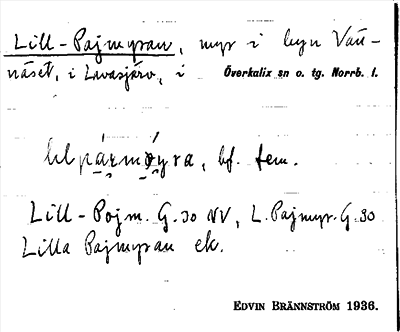 Lill-Pajmyran, myr i byn Vän-
näset, i Lavasjärv, i Överkalix sn o. tg. Norrb. l.
bf. fem.
Lill-Pojm. G. 30 NV, L. Pajmyr. G. 30
Lilla Pajmyran ek.
EDVIN BRÄNNSTRÖM 1936.